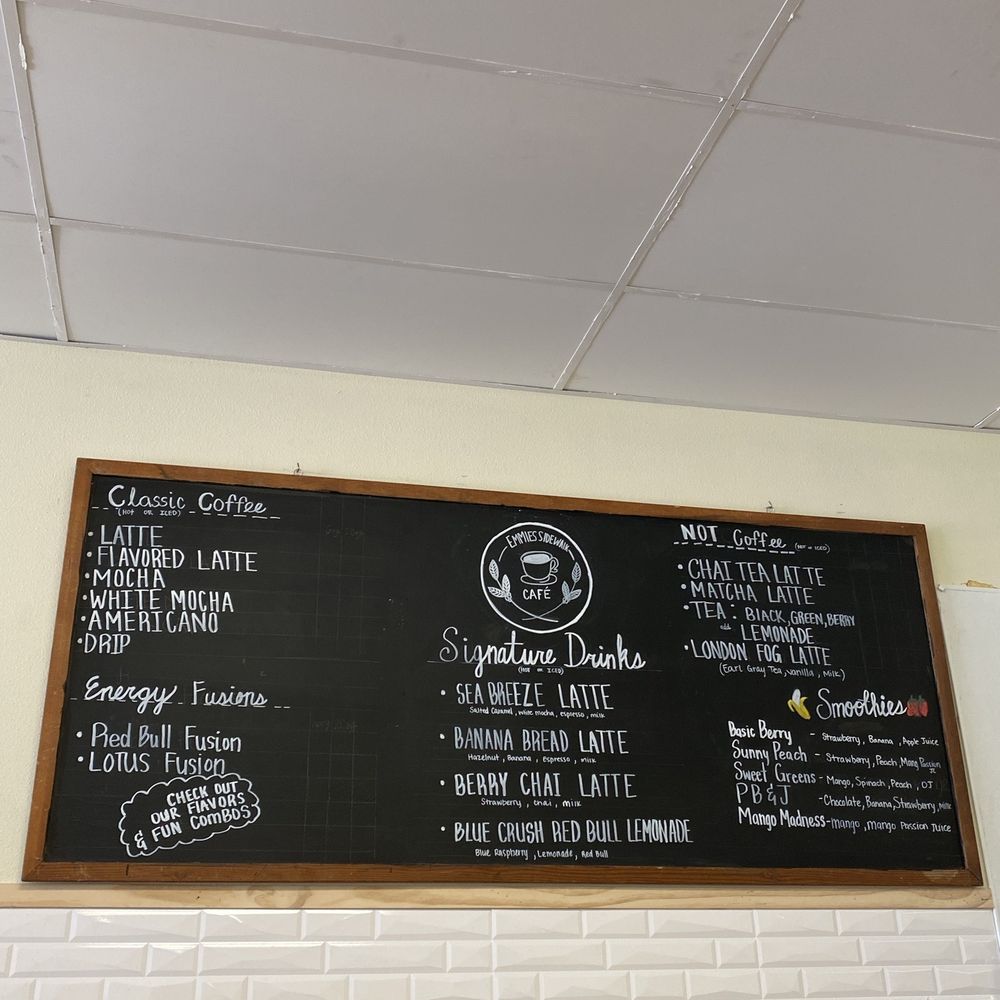 Classic Coffee
(HOT OR ICED)
• LATTE
• FLAVORED LATTE
• MOCHA
• WHITE MOCHA
• AMERICANO
• DRIP
Energy Fusions
• Red Bull Fusion
• LOTUS Fusion
CHECK OUT
OUR FLAVORS
& FUN COMBOS
EMMIES SIDEWALK
CAFÉ
Signature Drinks
(HOT OR ICED)
• SEA BREEZE LATTE
Salted Caramel, white mocha, espresso, milk
• BANANA BREAD LATTE
Hazelnut, Banana, espresso, milk
• BERRY CHAI LATTE
Strawberry, chai, milk
• BLUE CRUSH RED BULL LEMONADE
Blue Raspberry, Lemonade, Red Bull
NOT Coffee (HOT or ICED)
• CHAI TEA LATTE
• MATCHA LATTE
• TEA: BLACK, GREEN, BERRY
add LEMONADE
• LONDON FOG LATTE
(Earl Gray Tea, vanilla, Milk)
Smoothies
Basic Berry - Strawberry, Banana, Apple Juice
Sunny Peach - Strawberry, Peach, Mang Passion
Sweet Greens - Mango, Spinach, Peach, OJ
PB&J - Chocolate, Banana, Strawberry, Milk
Mango Madness - mango, Mango Passion Juice